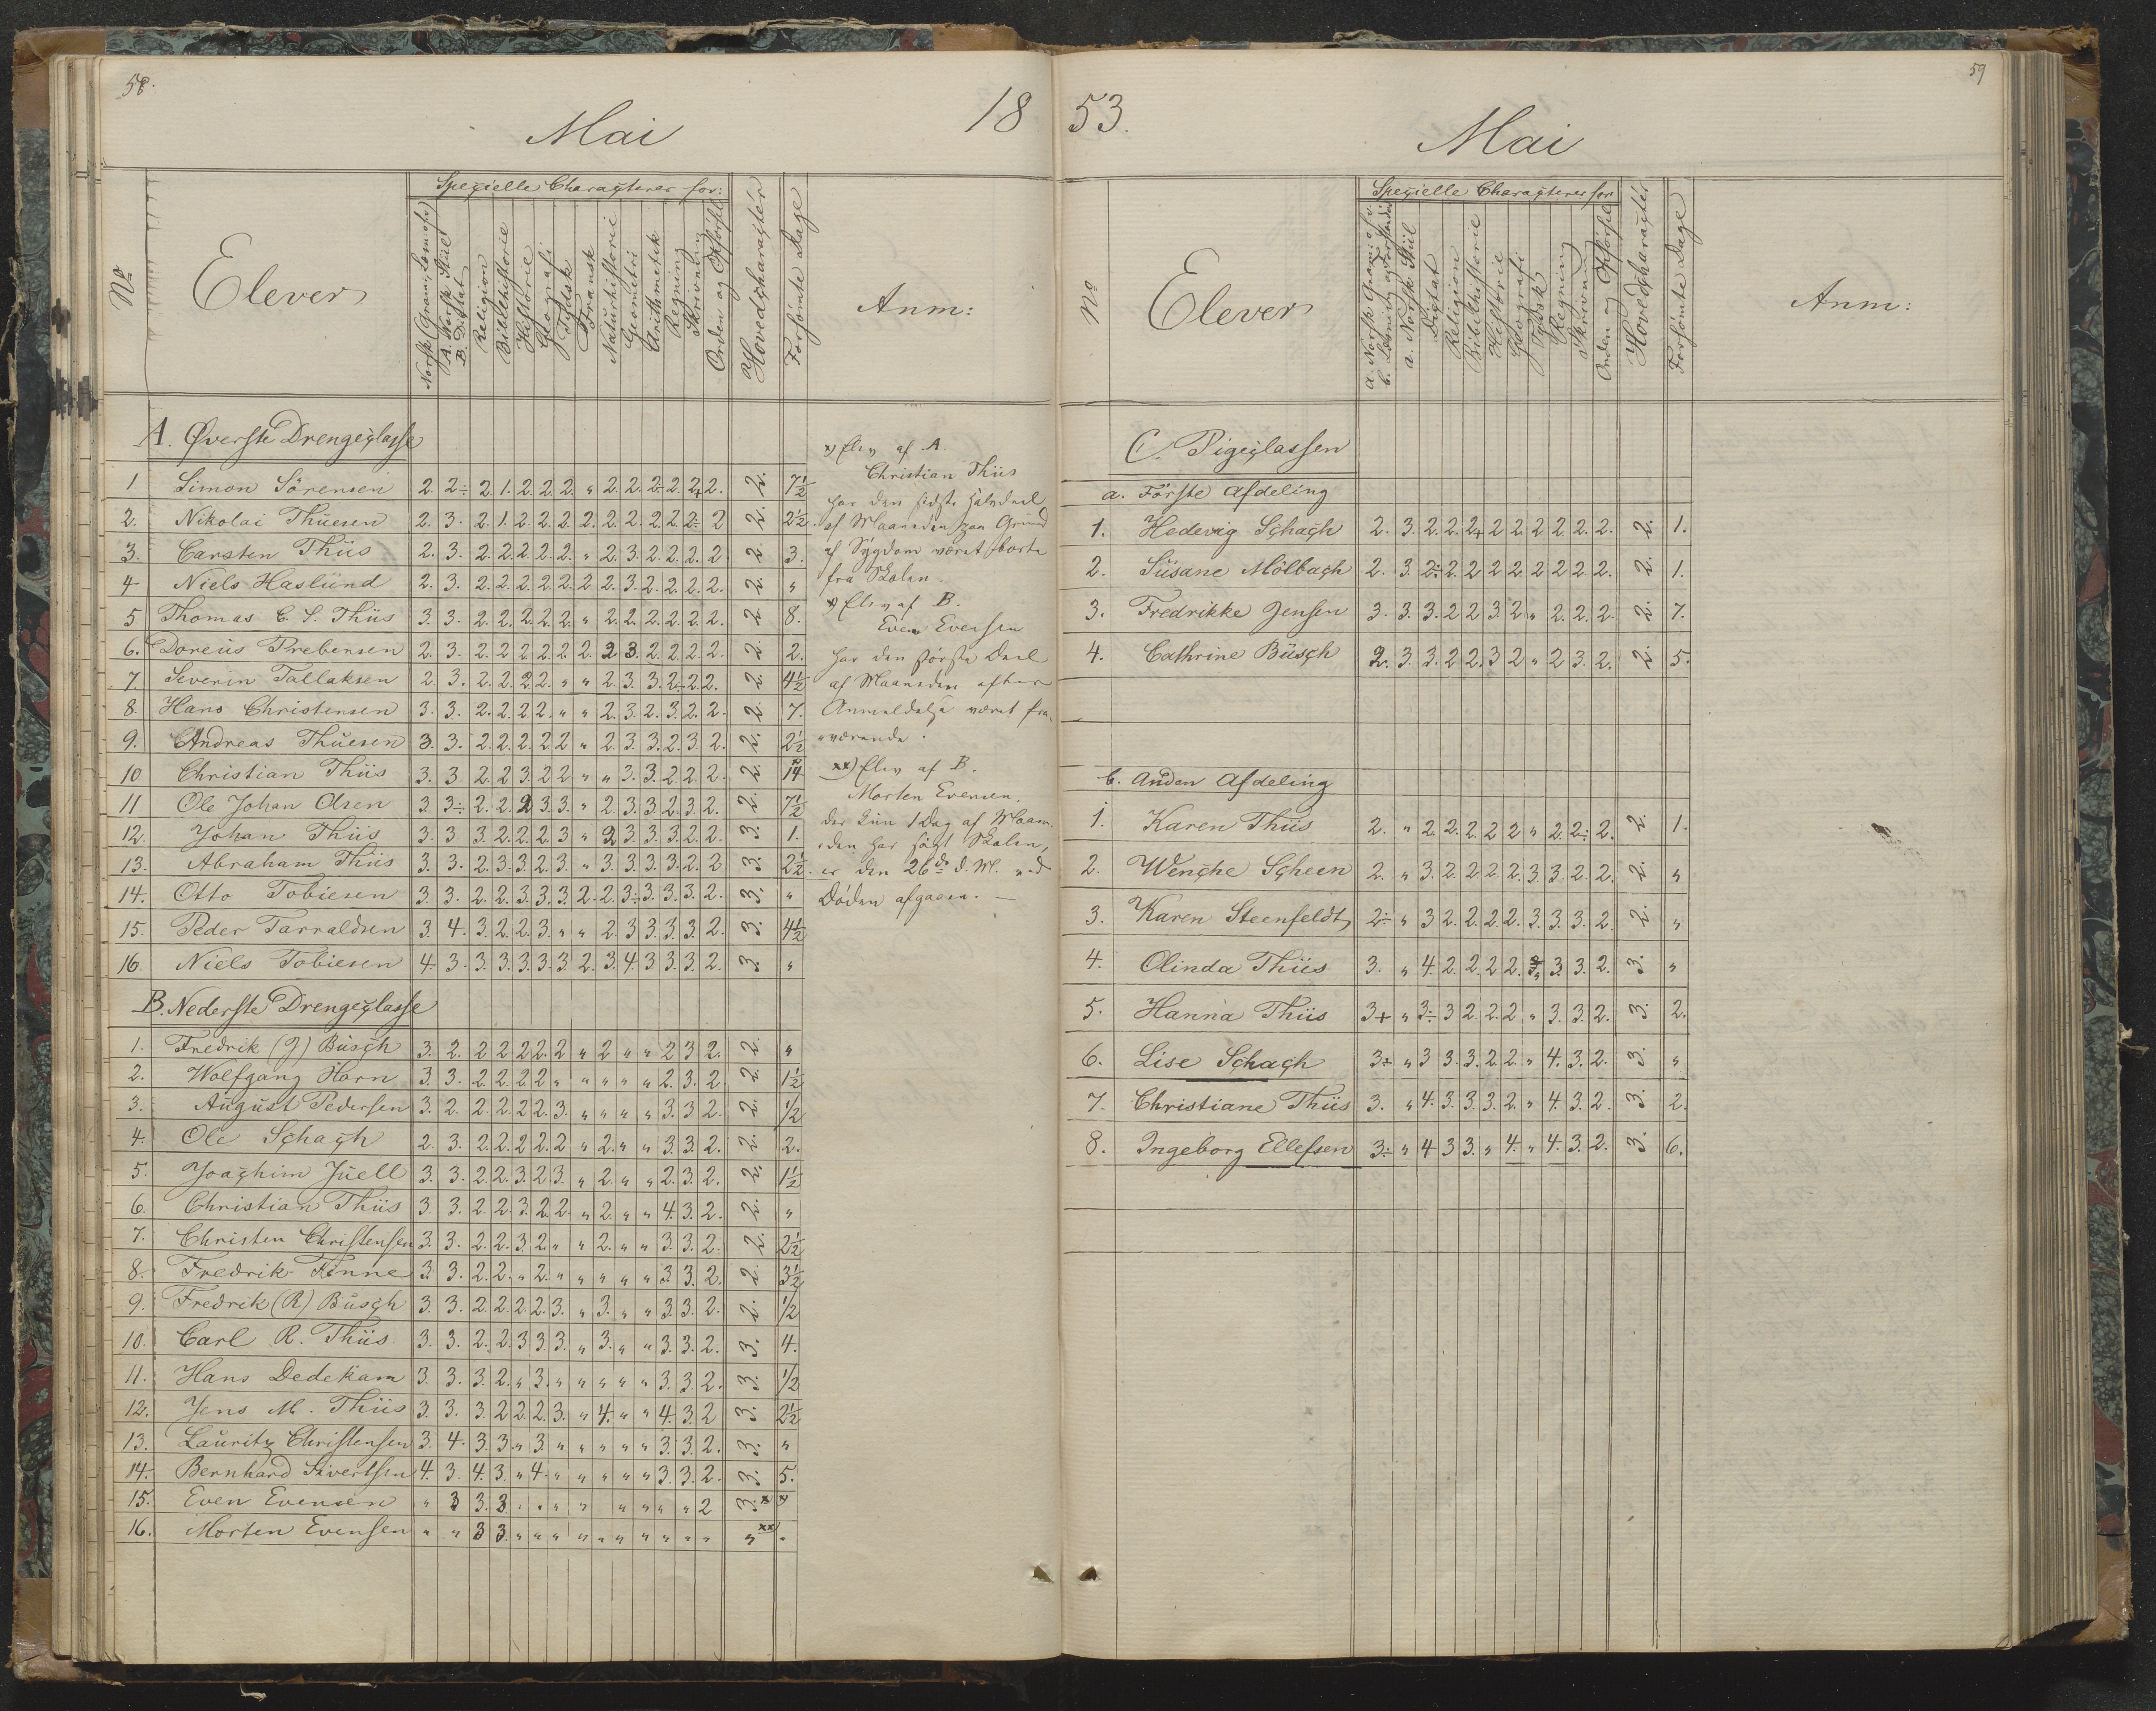 58.
Mai
18
Specielle Characterer for:
No
Elever
Norsk (Gram., Læsn. o. s. v.)
A. Norsk Stiil
B. Dictat
Religion
Bibelhistorie
Historie
Geografi
Tydsk
Fransk
Naturhistorie
Geometri
Arithmetik
Regning
Skrivning
Orden og Opførsel
Hovedcharacter
Forsømte Dage
Anm:
A. Øverste Drengeclasse
1. Simon Sörensen 2. 2÷ 2. 1. 2. 2. 2. " 2. 2. 2÷ 2. 2+ 2. 2. 7½
2. Nikolai Thuesen 2. 3. 2. 1. 2. 2. 2. 2. 2. 2. 2. 2. 2÷ 2 2. 2½
3. Carsten Thiis 2. 3. 2. 2. 2. 2. 2. " 2. 3. 2. 2. 2. 2 2. 3.
4 Niels Haslund 2. 3. 2. 2. 2. 2. 2. 2 2. 3. 2. 2. 2. 2. 2. "
5 Thomas C. S. Thiis 3. 3. 2. 2. 2. 2. 2. " 2. 2. 2. 2. 2. 2. 2. 8.
6. Doreus Prebensen 2. 3. 2. 2. 2. 2. 2. 2. 2 3. 2. 2. 2. 2. 2. 2.
7. Severin Tallaksen 2. 3. 2. 2. 2. 2. " " 2. 3. 3. 2÷ 2. 2. 2. 4½
8. Hans Christensen 3. 3. 2. 2. 2. 2. " " 2. 3. 2. 3. 2. 2. 2. 7.
9. Andreas Thuesen 3. 3. 2. 2. 2. 2. 2 " 2. 3. 3. 2. 3. 2. 2. 2½
10 Christian Thiis 3. 3. 2. 2 3. 2 2 " " 3. 3. 2. 2. 2. 2. 14
11 Ole Johan Olsen 3. 3÷ 2. 2. 2 3. 3. " 2. 3. 3. 2. 3. 2. 2. 7½
12. Johan Thiis 3. 3 3. 2. 2. 2. 3 " 2 3. 3. 3. 2. 2. 3. 1.
13. Abraham Thiis 3. 3. 2. 3. 3. 2. 3 " 3. 3. 3. 3. 2. 2 3. 2½
14. Otto Tobiesen 3. 3. 2. 2. 3. 3. 3. 2. 2. 3÷ 3. 3. 3. 2. 3. "
15. Peder Tarraldsen 3. 4. 3. 2. 2. 3. " " 2. 3 3. 3. 3. 2. 3. 4½
16. Niels Tobiesen 4. 3. 3. 3. 3. 3. 3. 2. 3. 4. 3. 3. 3. 2. 3. "
B. Nederste Drengeclasse
1. Fredrik (J) Busch 3. 2. 2 2 2 2. 2 " 2 " " 2 3 2. 2. "
2. Wolfgang Horn 3. 3. 2. 2. 2. 2 " " " " " 2. 3. 2 2. 1½
3. August Pedersen 3. 2. 2. 2. 2. 2. 3. " " " " 3. 3 2. 2. ½
4. Ole Schach 2. 3. 2. 2. 2. 2. 2 " 2. " " 3. 3. 2. 2. 2.
5. Joachim Juell 3. 3. 2. 2. 3. 2. 3. " 2. " " 2. 3. 2. 2. 1½
6. Christian Thiis 3. 3. 2. 2. 3. 2. 2. " 2. " " 4. 3. 2. 2. "
7. Christen Christensen 3. 3. 2. 2. 3. 2. " " 2. " " 3. 3. 2. 2. 2½
8. Fredrik Finne 3. 3. 2. 2. " 2. " " " " " 3. 3. 2. 2. 3½
9. Fredrik (R) Busch 3. 3. 2. 2. 2. 2. 3. " 3. " " 3. 3. 2. 2. ½
10. Carl R. Thiis 3. 3. 2. 2. 3 3. 3. " 3. " " 3. 3. 2. 3. 4.
11. Hans Dedekam 3. 3. 3. 2. " 3. " " " " " 3. 3. 2. 3. ½
12. Jens M. Thiis 3. 3. 3. 2 2. 2. 3. " 4. " " 4. 3. 2 3. 2½
13. Lauritz Christensen 3. 4. 3. 3. " 3. " " " " " 3. 3. 2. 3. "
14. Bernhard Sivertsen 4. 3. 4. 3. " 4. " " " " " 3. 3. 2. 3. 5.
15. Even Evensen " 3 3. 3. " " " " " " " " " 2 3. x x
16. Morten Evensen " " 3 3. " " " " " " " " " " " xx "
x) Elev af A.
Christian Thiis
har den sidste Halvdeel
af Maaneden paa Grund
af Sygdom været borte
fra Skolen.
x) Elev af B.
Even Evensen
har den største Deel
af Maaneden efter
Anmeldelse været fra-
værende.
xx) Elev af B.
Morten Evensen,
der kun 1 Dag af Maane-
den har søgt Skolen,
er den 26de d. M. ved
Døden afgaaen. —
59
53.
Mai
Specielle Characterer for
No
Elever
a. Norsk Gram: o. s. v.
b. Læsning og Forstand
a. Norsk Stiil
Dictat
Religion
Bibelhistorie
Historie
Geografi
Tydsk
Regning
Skrivning
Orden og Opførsel
Hovedcharacter
Forsømte Dage
Anm:
C. Pigeclassen
a. Første Afdeling
1. Hedevig Schach 2. 3. 2. 2. 2+ 2 2. 2. 2. 2. 2. 2. 1.
2. Susane Mölbach 2. 3. 2÷ 2. 2 2 2 2 2 2. 2. 2. 1.
3. Fredrikke Jensen 3. 3. 3. 2 2 3. 2 " 2. 2. 2. 2. 7.
4. Cathrine Busch 2. 3. 3. 2 2. 3 2 " 2 3. 2. 2. 5.
b. Anden Afdeling
1. Karen Thiis 2. " 2. 2. 2. 2 2 " 2. 2÷ 2. 2. 1.
2. Wenche Scheen 2. " 3. 2. 2. 2. 2. 3. 3. 2. 2. 2. "
3. Karen Steenfeldt 2÷ " 3 2. 2. 2. 2. 3. 3. 3. 2. 2. "
4. Olinda Thiis 3. " 4. 2. 2. 2 2. " 3. 3. 2. 3. "
5. Hanna Thiis 3+ " 3÷ 3 2. 2. 2 " 3. 3. 2. 3. 2.
6. Lise Schach 3÷ " 3 3. 3. 2. 2. " 4. 3. 2. 3. "
7. Christiane Thiis 3. " 4. 3. 3. 3. 2. " 4. 3. 2. 3. 2.
8. Ingeborg Ellefsen 3÷ " 4 3 3. " 4. " 4. 3. 2. 3. 6.